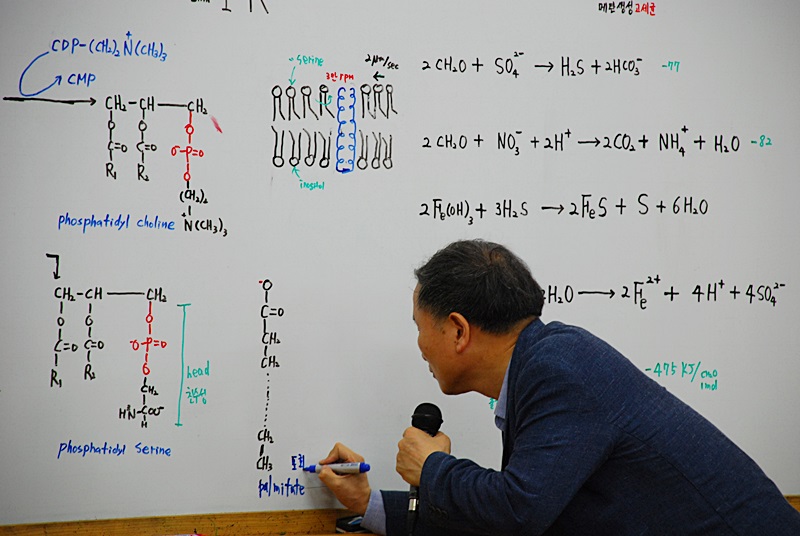 메탄생성고세균
CDP-(CH₂)₂N⁺(CH₃)₃
CMP
CH₂-CH-CH₂
O O O
C=O C=O ⁻O-P=O
R₁ R₂ O
(CH₂)₂
⁺N(CH₃)₃
phosphatidyl choline
serine
3만 rpm
2μm/sec
inositol
2CH₂O + SO₄²⁻ → H₂S + 2HCO₃⁻ -77
2CH₂O + NO₃⁻ + 2H⁺ → 2CO₂ + NH₄⁺ + H₂O -82
2Fe(OH)₃ + 3H₂S → 2FeS + S + 6H₂O
H₂O → 2Fe²⁺ + 4H⁺ + 4SO₄²⁻
-475 KJ/
1mol
CH₂-CH-CH₂
O O O
C=O C=O ⁻O-P=O
R₁ R₂ O
CH₂
H₃⁺N-C-COO⁻
H
head
친수성
phosphatidyl serine
⁻O
C=O
CH₂
CH₂
CH₂
CH₃
포화
palmitate